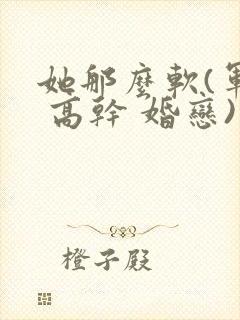 她那麼軟(軍
高幹 婚戀)
橙子殿